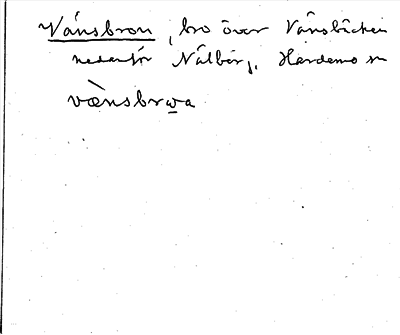 Vånsbron, bro över Vånsbäcken
nedanför Nålberg. Hardemo sn
vænsbrωa